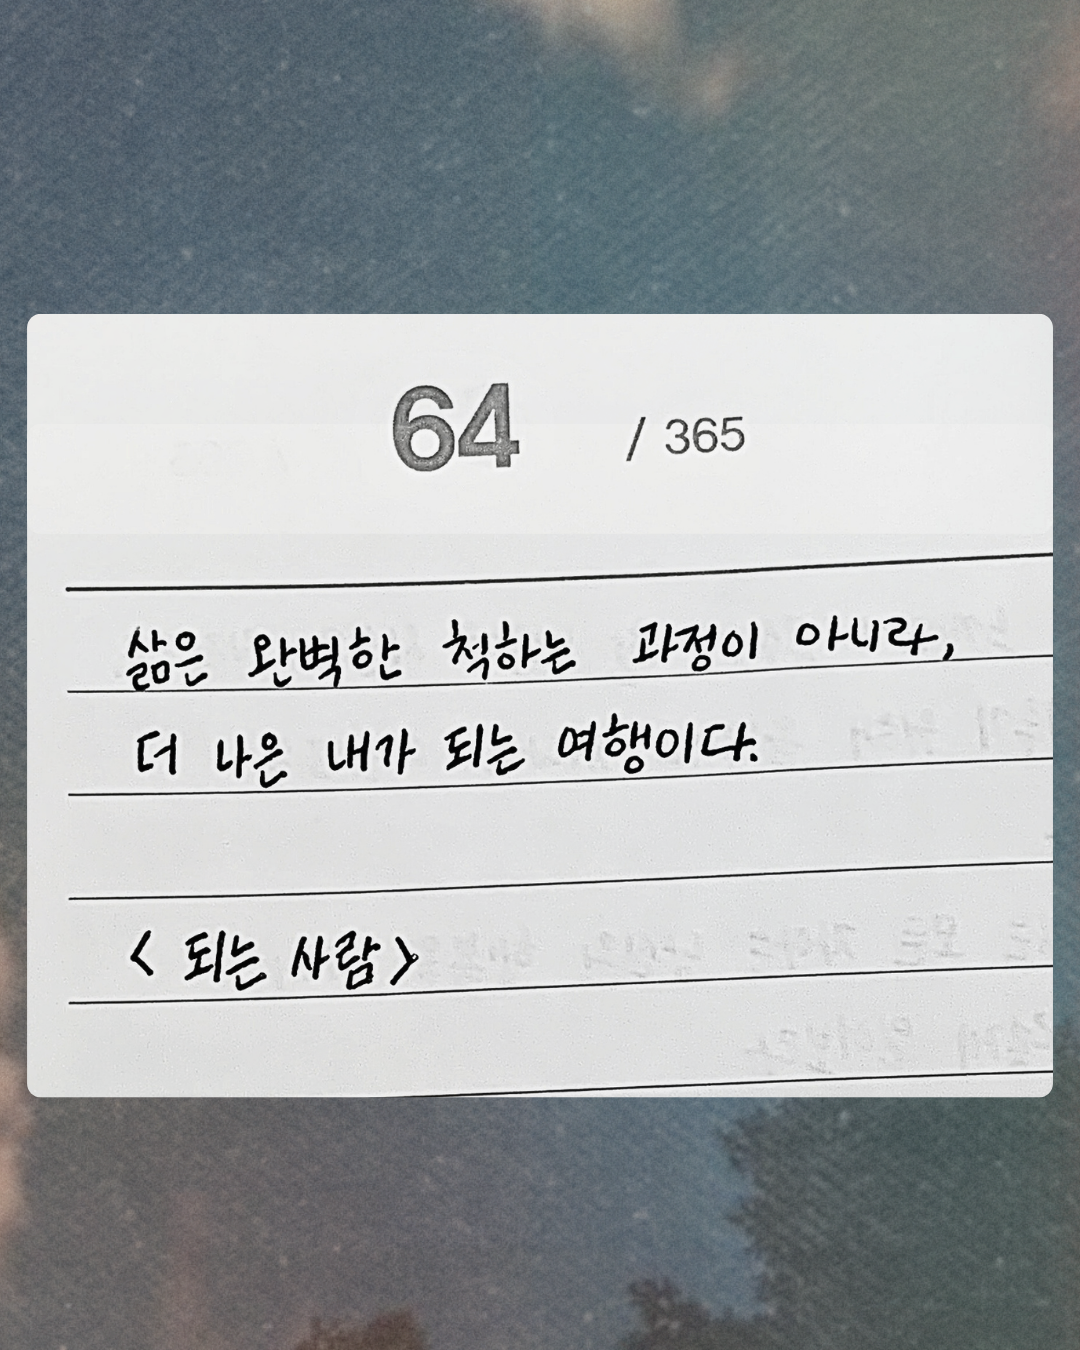 64 / 365
삶은 완벽한 척하는 과정이 아니라,
더 나은 내가 되는 여행이다.
< 되는 사람>